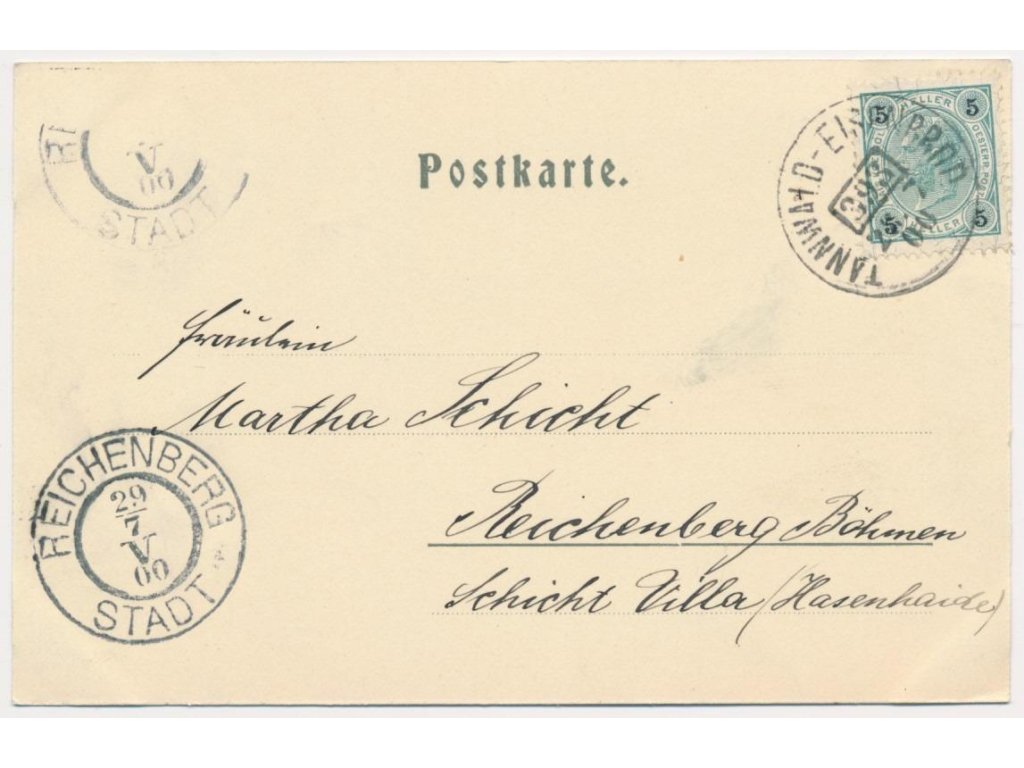 Postkarte.
5 HELLER 5
OESTERR. POST
5 HELLER 5
TANNWALD-EISENBROD
00
V
00
STADT
Fräulein
Martha Schicht
Reichenberg Böhmen
Schicht Villa (Hasenhaide)
REICHENBERG
29
7
V
00
STADT